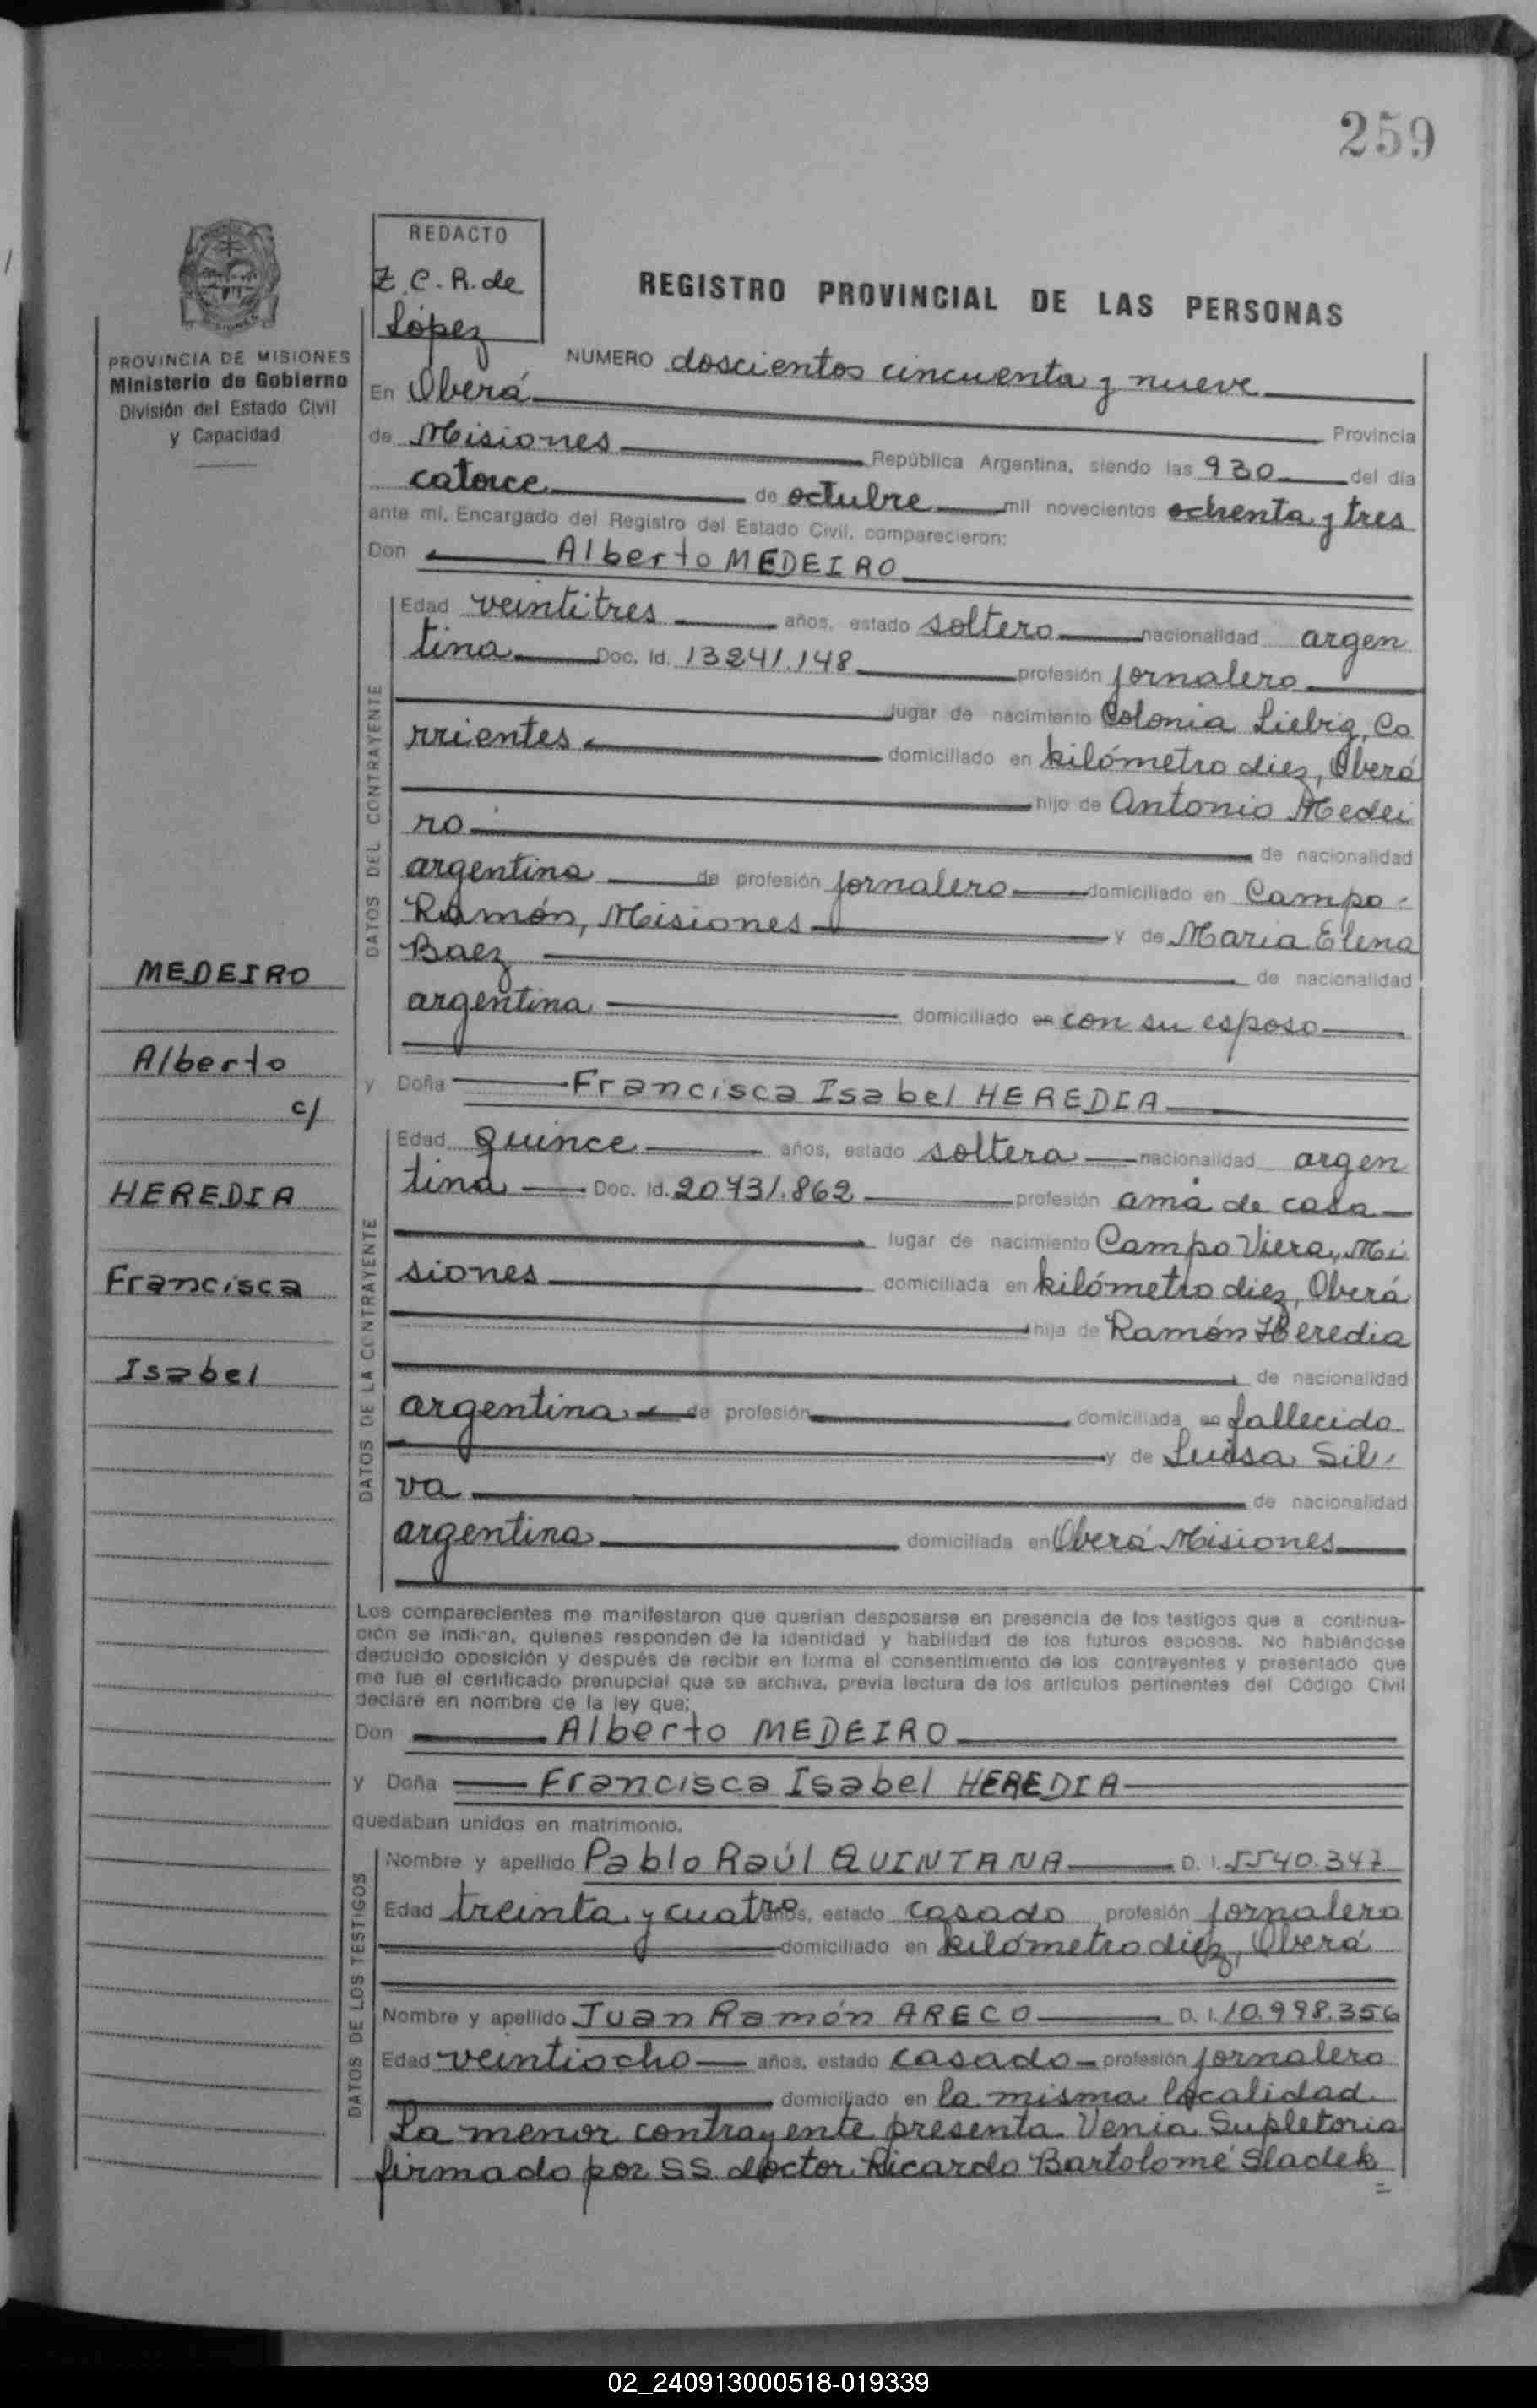 259
REDACTO
Z. C. R. de
López
REGISTRO PROVINCIAL DE LAS PERSONAS
PROVINCIA DE MISIONES
Ministerio de Gobierno
División del Estado Civil
y Capacidad
NUMERO doscientos cincuenta y nueve
En Oberá
Provincia
de Misiones República Argentina, siendo las 930 del día
catorce de octubre mil novecientos ochenta y tres
ante mí, Encargado del Registro del Estado Civil, comparecieron:
Don Alberto MEDEIRO
DATOS DEL CONTRAYENTE
Edad veintitres años, estado soltero nacionalidad argen
tina Doc. Id. 13241.148 profesión jornalero
lugar de nacimiento Colonia Liebig, Co
rrientes domiciliado en kilómetro diez, Oberá
hijo de Antonio Medei
ro de nacionalidad
argentina de profesión jornalero domiciliado en Campo
Ramón, Misiones y de Maria Elena
Baez de nacionalidad
argentina domiciliado en con su esposo
MEDEIRO
Alberto
c/
HEREDIA
Francisca
Isabel
y Doña Francisca Isabel HEREDIA
DATOS DE LA CONTRAYENTE
Edad quince años, estado soltera nacionalidad argen
tina Doc. Id. 20731.862 profesión ama de casa
lugar de nacimiento Campo Viera, Mi
siones domiciliada en kilómetro diez, Oberá
hija de Ramón Heredia
de nacionalidad
argentina de profesión domiciliada en fallecido
y de Luisa Sil
va de nacionalidad
argentina domiciliada en Oberá Misiones
Los comparecientes me manifestaron que querían desposarse en presencia de los testigos que a continua-
ción se indican, quienes responden de la identidad y habilidad de los futuros esposos. No habiéndose
deducido oposición y después de recibir en forma el consentimiento de los contrayentes y presentado que
me fue el certificado prenupcial que se archiva, previa lectura de los artículos pertinentes del Código Civil
declaré en nombre de la ley que;
Don Alberto MEDEIRO
y Doña Francisca Isabel HEREDIA
quedaban unidos en matrimonio.
DATOS DE LOS TESTIGOS
Nombre y apellido Pablo Raúl QUINTANA D. I. 5540.347
Edad treinta y cuatro años, estado casado profesión jornalero
domiciliado en kilómetro diez, Oberá
Nombre y apellido Juan Ramón ARECO D. I. 10.998.356
Edad veintiocho años, estado casado profesión jornalero
domiciliado en la misma localidad.
La menor contrayente presenta Venia Supletoria
firmado por SS doctor Ricardo Bartolomé Sladek
02_240913000518-019339